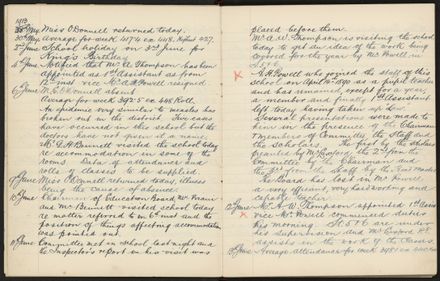 1913
28th May Miss O'Donnell returned today.
30th May Average for week 417.4 ex 448. Highest 427.
3rd June School holiday on 3rd June for
King's Birthday
4th June Notified that Mr A W Thompson has been
appointed as 1st Assistant as from
Mr A H Powell resigned
6th June M. E. O'Donnell absent
Average for week 392.5 ex 448 Roll.
An epidemic very similar to measles has
broken out in the district. Five cases
have occurred in this school but the
doctors have not given it a name.
Mr G H Bennett visited the school today
re accommodation in some of the
rooms. Dates of attendance and
rolls of classes to be supplied
9th June Miss O'Donnell returned today, illness
being the cause of absence
10th June Chairman of Education Board Mr
and Mr Bennett visited school today
re matter referred to on 6th inst and the
position of things affecting accommodation
was pointed out.
11th June Committee met in School last night and
the Inspector's report on his visit was
placed before them.
Mr A. W. Thompson is visiting the school
today to get an idea of the work being
covered for the year by Mr Powell in
A. H. Powell who joined the staff of this
school on April 1890 as a pupil teacher
and has remained, except for a year,
a member and finally 1st Assistant
left today having taken up
Several presentations were made to
him in the presence of the Chairman
Members of Committee, the Staff and
the scholars. The first by the Scholars
the 2nd from the
Committee by the Chairman and
the 3rd from the Staff by the Head Master
The Board has lost in Mr Powell
a very efficient, very hardworking and
capable teacher
12th June Mr A. W. Thompson appointed 1st Assist
vice Mr Powell commenced duties
this morning. St 5 & 6 are under
his supervision and
assists in the work of the classes.
13th June Average attendance for week